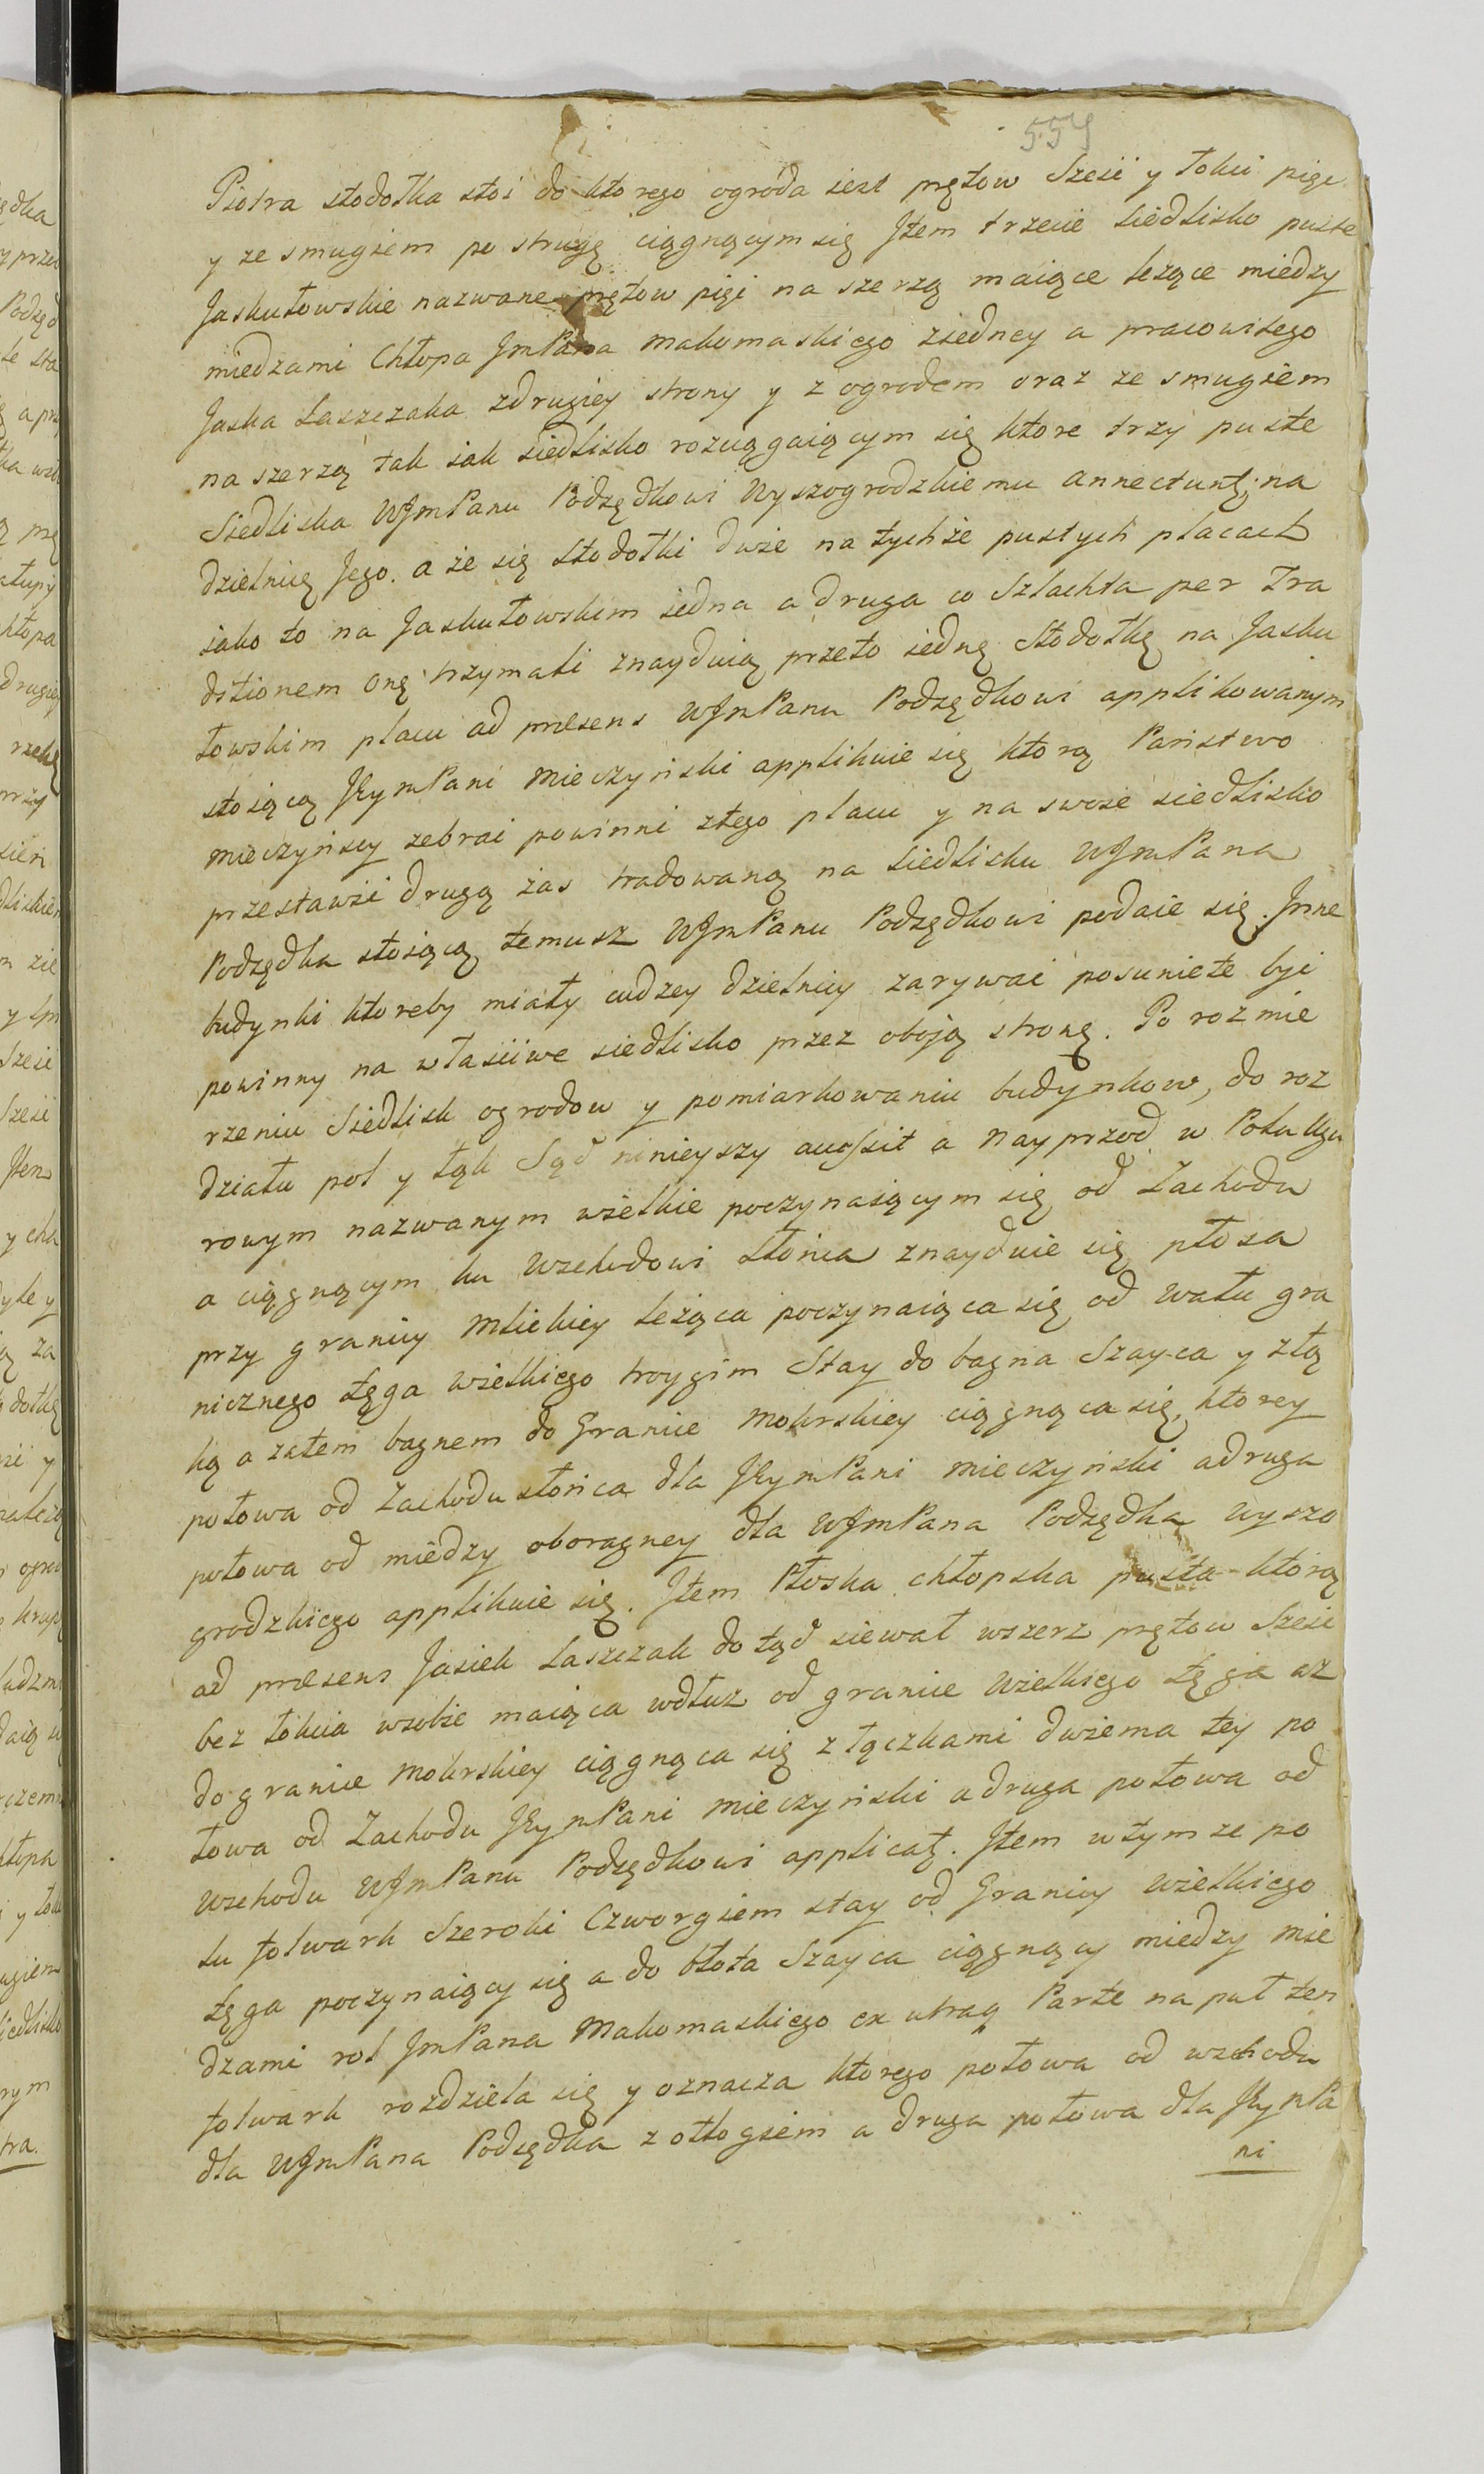 559
Piotra stodołka stoi do ktorego ogroda iest prętow Szesć y łokci pięc
y ze smugiem po strugę ciągnącym się Jtem trzecie siedlisko puste
Jaskułowskie nazwane prętow pięć na szerzą maiące leżące miedzy
miedzami Chłopa JmPana Makomaskiego ziedney a pracowitego
Jaska Łaszczaka zdrugiey strony y z ogrodem oraz ze smugiem
na szerzą tak iak siedlisko rozciągaiącym się ktore trzy puste
Siedliska WJmPanu Podsędkowi Wyszogrodzkiemu annectunt; na
dzielnicę Jego. a że się stodołki dwie na tychże pustych placach
iako to na Jaskułowskim iedna a druga co Szlachta per Tra
ditionem onę trzymali znayduią przeto iednę Stodołkę na Jasku
łowskim placu ad præsens WJmPanu Podsędkowi applikowanym
stoiącą JEymPani Mieczyński applikuie się ktorą Państwo
Mieczyńscy zebrać powinni ztego placu y na swoie siedlisko
przestawić drugą zas tradowaną na siedlisku WJmPana
Podsędka stoiącą temusz WJmPanu Podsędkowi podaie się. Jnne
budynki ktoreby miały cudzey dzielnicy zarywać posuniete być
powinny na własciwe siedlisko przez oboją stronę. Po rozmie
rzeniu Siedlisk ogrodow y pomiarkowaniu budynkow, do roz
działu pol y łąk Sąd ninieyszy accessit a nayprzod w Polu Ugu
rowym nazwanym wielkie poczynaiącym się od Zachodu
a ciągnącym ku wschodowi słonca znayduie się płosa
przy granicy Mlickiey leżąca poczynaiąca się od wału gra
nicznego Łęga wielkiego troygim Stay do bagna Szayca y złą
ką a zatem bagnem do Granice Mokrskiey ciągnąca się, ktorey
połowa od Zachodu słońca dla JEymPani Mieczyński a druga
połowa od miedzy oboragney dla WJmPana Podsędka Wyszo
grodzkiego applikuie się. Jtem Płoska chłopska pusta ktorą
ad præsens Jasiek Łaszczak dotąd siewał wszerz prętow Szesć
bez łokcia wsobie maiąca wdłuż od granice Wielkiego Łęga aż
do granice Mokrskiey ciągnąca się z łączkami dwiema tey po
łowa od Zachodu JEymPani Mieczyński a druga połowa od
Wschodu WJmPanu Podsędkowi applicat. Jtem w tymze po
lu folwark Szeroki Czworgiem stay od Granicy Wielkiego
Łęga poczynaiący się a do błota Szayca ciągnący miedzy mie
dzami rol JmPana Makomaskiego ex utraq Parte na puł ten
folwark rozdziela się y oznacza ktorego połowa od wschodu
dla WJmPana Podsędka z odłogiem a druga połowa dla JEymPa
ni